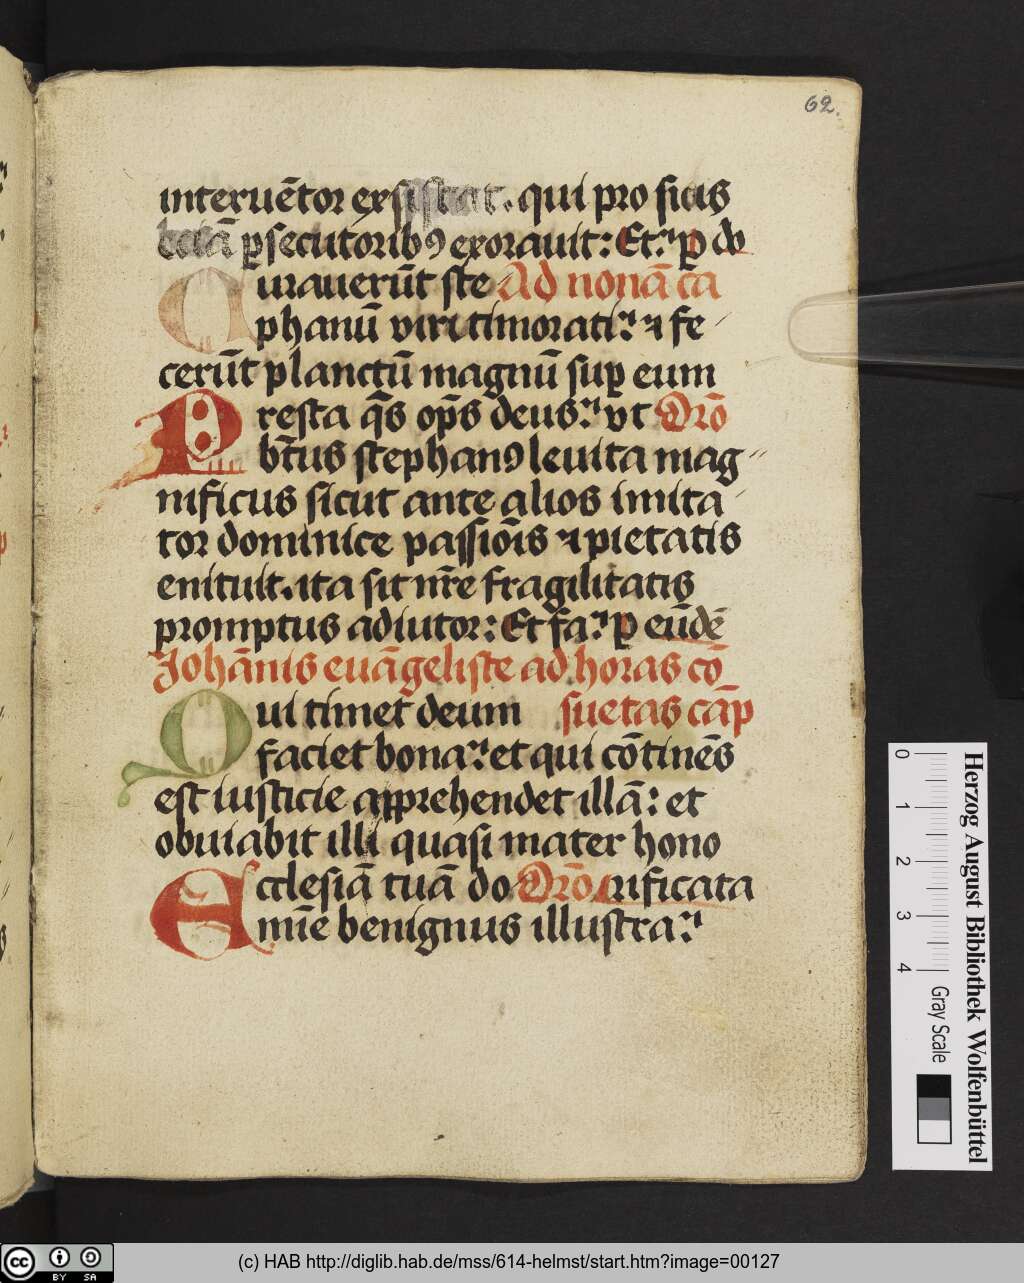 62.
interuētor exsistat. qui pro suis
etiā ꝑsecutoribꝰ exorauit: Et ꝑ do
Curauerūt ste Ad nonā ca
phanū viri timorati ⁊ fe
cerūt planctū magnū suꝑ eum
Presta q̄s op̄s deus ut Orō
bt̄us stephanꝰ leuita mag
nificus sicut ante alios imita
tor dominice passiōis ⁊ pietatis
enituit. ita sit nr̄e fragilitatis
promptus adiutor: Et fa ꝑ eūdē
Johānis euāgeliste ad horas cō
Qui timet deum suetas cāp
faciet bona et qui cōtinēs
est iusticie apprehendet illā: et
obuiabit illi quasi mater hono
Ecclesiā tuā do Orō rificata
mīe benignus illustra
Herzog August Bibliothek Wolfenbüttel
0 1 2 3 4 Gray Scale
cc BY SA
(c) HAB http://diglib.hab.de/mss/614-helmst/start.htm?image=00127